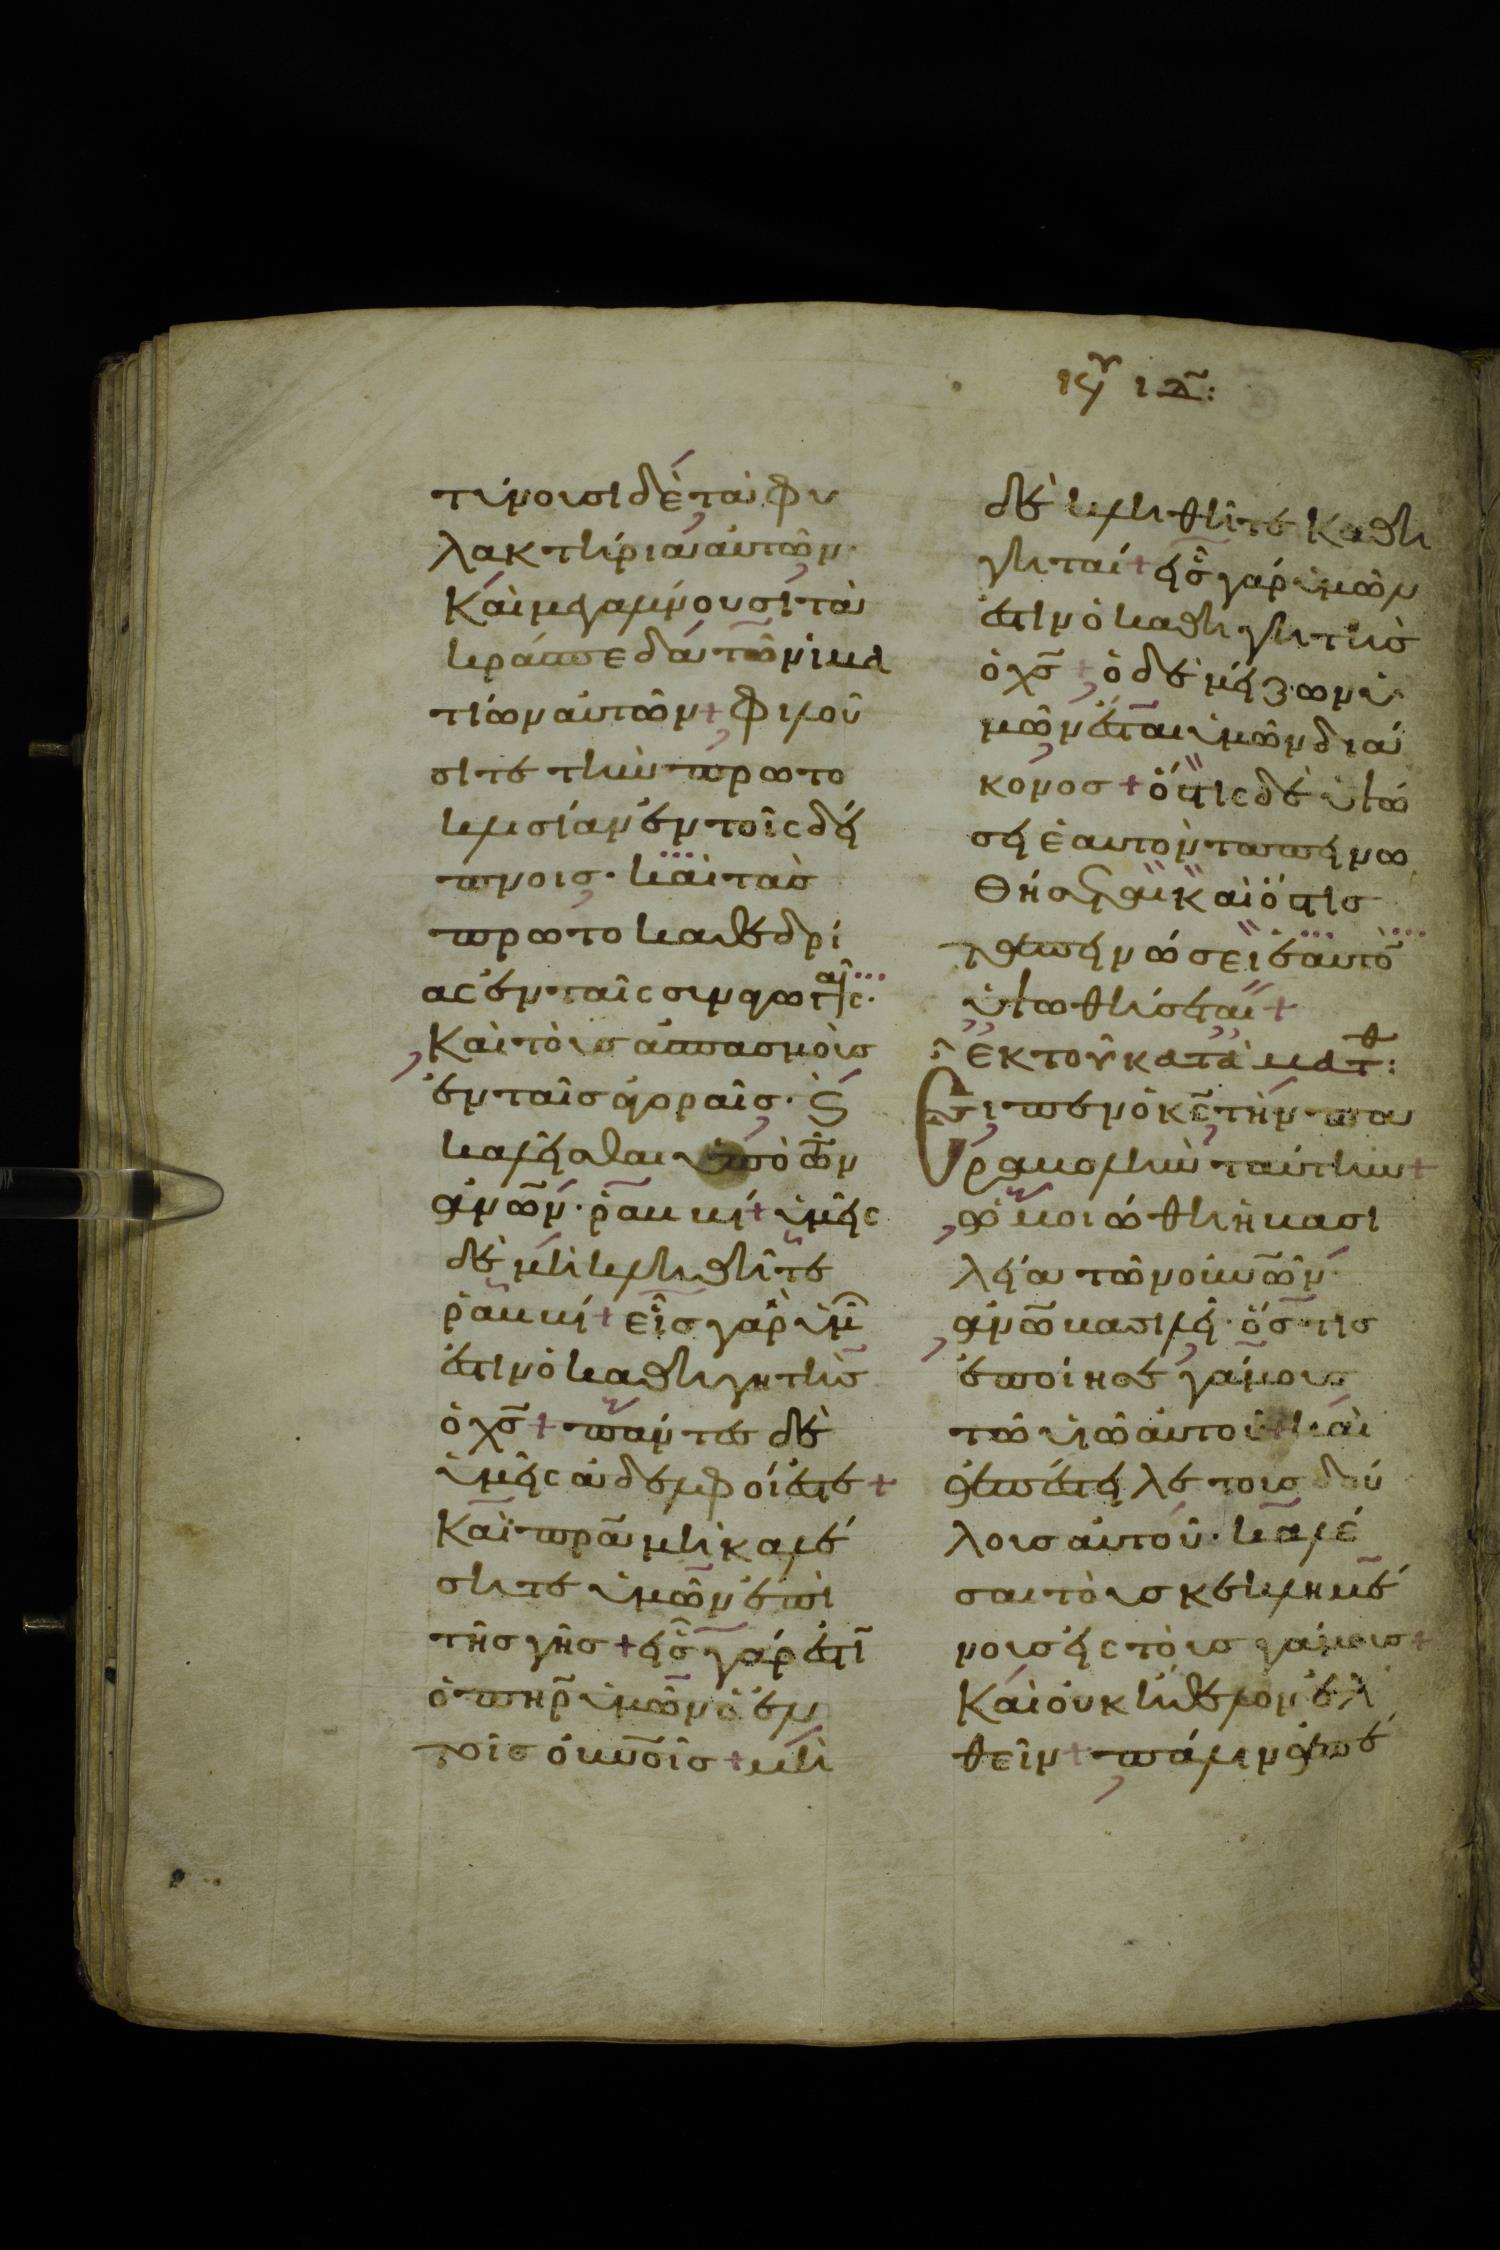 κυ ιδ:
τύνουσι δὲ τὰ φυ
λακτήρια αὐτῶν·
Καὶ μεγαλύνουσι τὰ
κράσπεδα τῶν ἱμα
τίων αὐτῶν + φιλοῦ
σί τε τὴν πρωτο
κλισίαν ἐν τοῖς δεί
πνοις· καὶ τὰς
πρωτοκαθεδρί
ας ἐν ταῖς συναγωγαῖς·
Καὶ τοὺς ἀσπασμοὺς
ἐν ταῖς ἀγοραῖς· ϗ
καλεῖσθαι ὑπὸ τῶν
ἀνων· ῥαββί + ὑμεῖς
δὲ μὴ κληθῆτε
ῥαββί + εἷς γὰρ ὑμῶν
ἐστιν ὁ καθηγητὴς
ὁ χς + πάντες δὲ
ὑμεῖς ἀδελφοί ἐστε +
Καὶ πρα μὴ καλέ
σητε ὑμῶν ἐπὶ
τῆς γῆς + εἷς γάρ ἐστι
ὁ πηρ ὑμῶν ὁ ἐν
τοῖς οὐνοῖς + μὴ
δὲ κληθῆτε Καθη
γηταί + εἷς γὰρ ὑμῶν
ἐστιν ὁ καθηγητὴς
ὁ χς + ὁ δὲ μείζων ὑ
μῶν ἔσται ὑμῶν διά
κονος + ὅστις δὲ ὑψώ
σει ἑαυτὸν ταπεινω
θήσεται Καὶ ὅστις
ταπεινώσει ἑαυτὸ
ὑψωθήσεται +
ἐκ τοῦ κατὰ ματθ:
Εἶπεν ὁ κς τὴν πα
ραβολὴν ταύτην +
ὡμοιώθη ἡ βασι
λεία τῶν οὐνῶν
ἀνω βασιλεῖ· ὅστις
ἐποίησε γάμους
τῷ υἱῷ αὐτοῦ + Καὶ
ἀπέστειλε τοὺς δού
λους αὐτοῦ· καλέ
σαι τοὺς κεκλημέ
νους εἰς τοὺς γάμους +
Καὶ οὐκ ἤθελον ἐλ
θεῖν + πάλιν ἀπέ